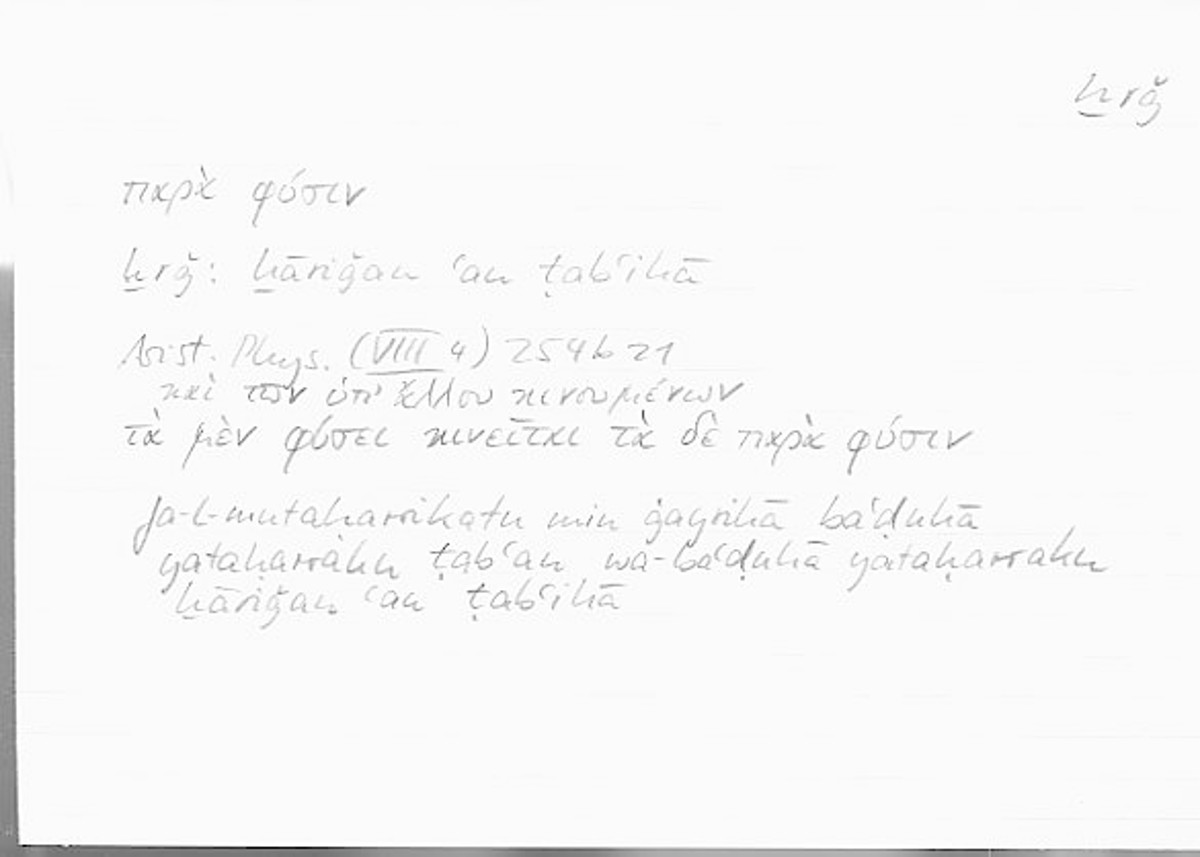 ḫrǧ
παρὰ φύσιν
ḫrǧ: ḫāriǧan ʿan ṭabʿihā
Arist. Phys. (VIII 4) 254b21
καὶ τῶν ὑπ' ἄλλου κινουμένων
τὰ μὲν φύσει κινεῖται τὰ δὲ παρὰ φύσιν
fa-l-mutaḥarrikatu min ġayrihā baʿḍuhā
yataḥarraku ṭabʿan wa-baʿḍuhā yataḥarraku
ḫāriǧan ʿan ṭabʿihā